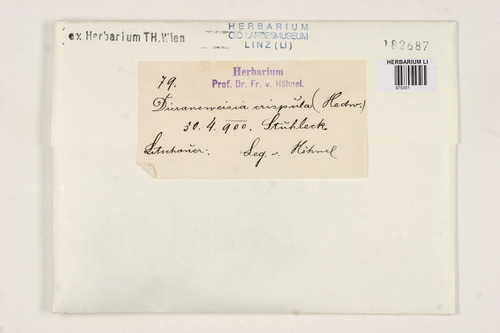 ex Herbarium TH.Wien
HERBARIUM
OÖ LANDESMUSEUM
LINZ (LI)
182687
HERBARIUM LI
Herbarium
Prof. Dr. Fr. v. Höhnel.
79.
Dicranoweisia crispula (Hedw.)
30.4.900. Stuhleck
Litschauer. Leg. v. Höhnel